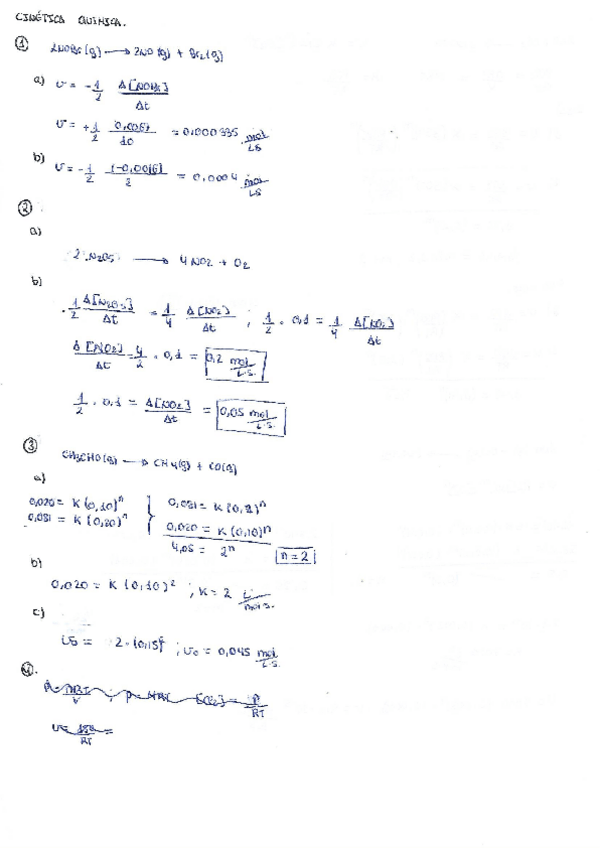 CINÉTICA QUÍMICA.
① 2NOBr(g) → 2NO(g) + Br2(g)
a) v = -1/2 Δ[NOBr]/Δt
v = +1/2 /10 = 0,000335 mol/LS
b) v = -1/2 /2 = 0,0004 mol/LS
②
a)
2 N2O5 → 4NO2 + O2
b)
1/2 Δ[N2O5]/Δt = 1/4 Δ[NO2]/Δt ; 1/2 · 0,1 = 1/4 Δ[NO2]/Δt
Δ[NO2]/Δt = 4/2 · 0,1 = 0,2 mol/L·S.
1/2 · 0,1 = Δ[O2]/Δt = 0,05 mol/L·S.
③ CH3CHO(g) → CH4(g) + CO(g)
a)
0,020 = K (0,10)^n } 0,081 = K (0,2)^n
0,081 = K (0,20)^n 0,020 = K (0,10)^n
4,05 = 2^n n = 2
b)
0,020 = K (0,10)^2 ; K = 2 L/mol s.
c)
2 · (0,15)^2 ; v0 = 0,045 mol/L·S.
4.
P/RT
RT